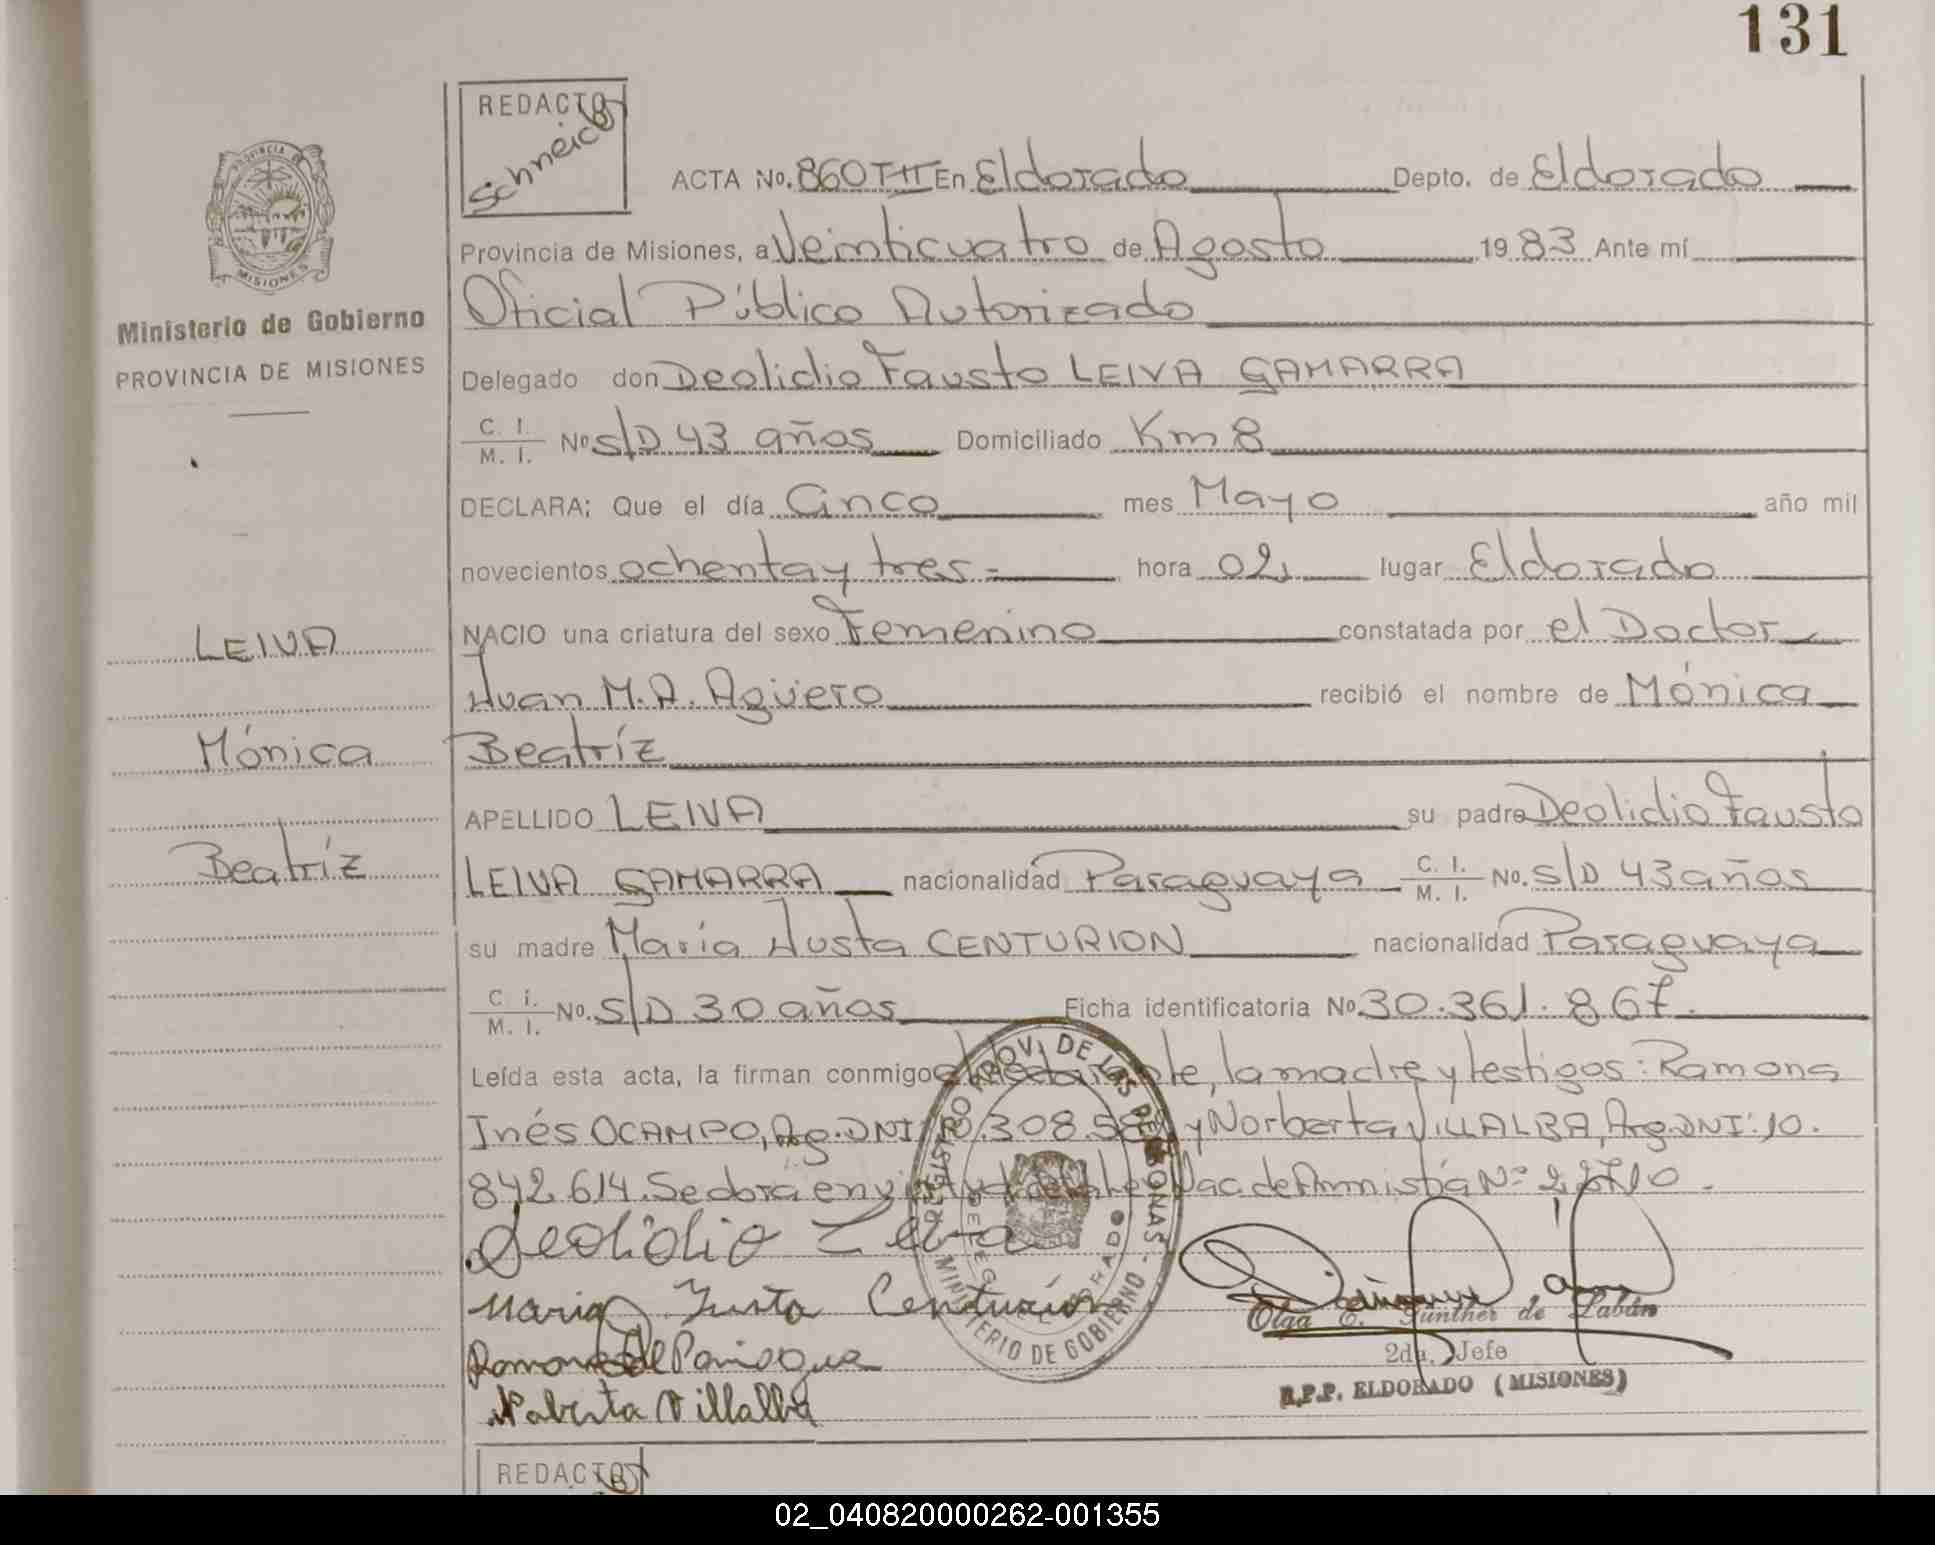 131
REDACTO
Schneider
ACTA No. 860 T-II En Eldorado Depto. de Eldorado
Provincia de Misiones, a Veinticuatro de Agosto 1983 Ante mí
Oficial Público Autorizado
Delegado don Deolidio Fausto LEIVA GAMARRA
C. I.
M. I. No S/D 43 años Domiciliado Km 8
DECLARA; Que el día Cinco mes Mayo año mil
novecientos ochenta y tres= hora 02, lugar Eldorado
NACIO una criatura del sexo Femenino constatada por el Doctor
Juan M.A. Agüero recibió el nombre de Mónica
Beatríz
APELLIDO LEIVA su padre Deolidio Fausto
LEIVA GAMARRA nacionalidad Paraguaya C. I. M. I. No. S/D 43 años
su madre María Justa CENTURION nacionalidad Paraguaya
C. i.
M. I. No. S/D 30 años Ficha identificatoria No 30.361.867.
Leída esta acta, la firman conmigo el declarante, la madre y testigos: Ramona
Inés OCAMPO, Arg. DNI .308.58 y Norberta VILLALBA, Arg. DNI: 10.
842.614. Se labra en virtud de la Ley Nac. de Amnistía Nº
Deolidio Leiva
Maria Justa Centurión
Ramona de Paniagua
Norberta Villalba
REGISTRO PROV. DE LAS PERSONAS - MINISTERIO DE GOBIERNO
DELEG. ELDORADO
Olga E. Günther de Labán
2da. Jefe
R.P.P. ELDORADO (MISIONES)
REDACTO
PROVINCIA DE
MISIONES
Ministerio de Gobierno
PROVINCIA DE MISIONES
LEIVA
Mónica
Beatríz
02_040820000262-001355